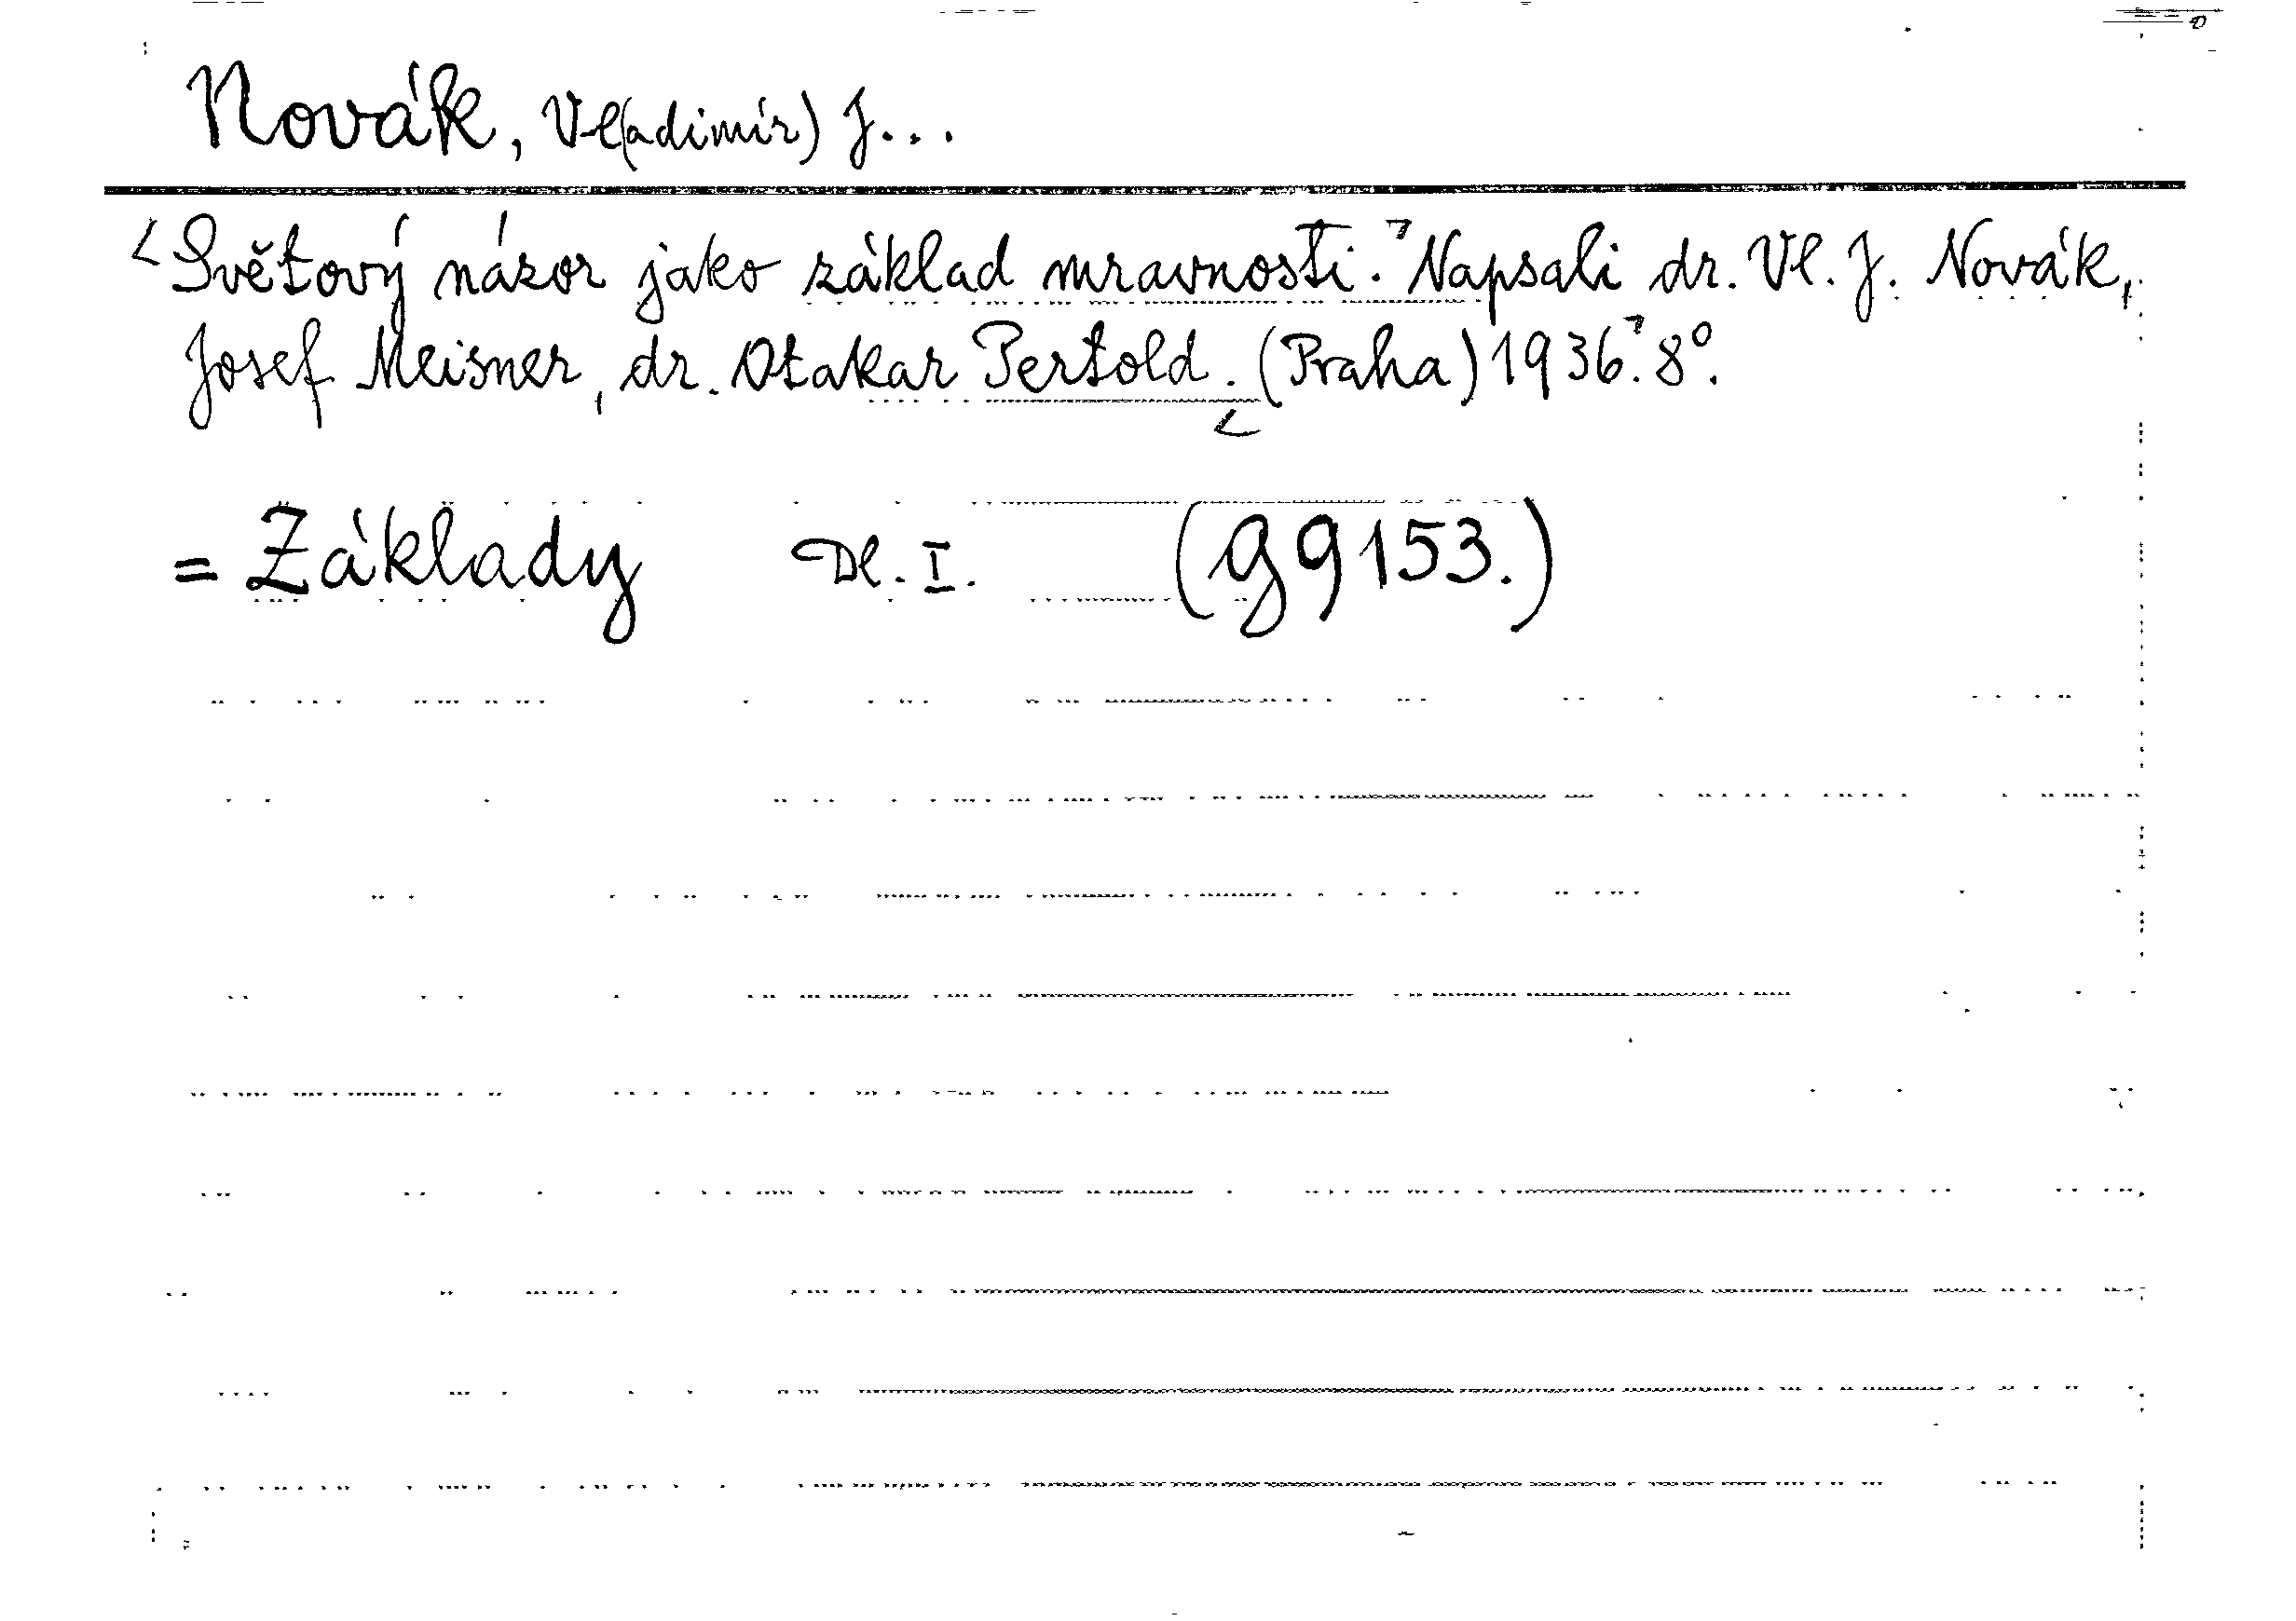 Novák, Vl(adimír) J...
Světový názor jako základ mravnosti. Napsali dr. Vl. J. Novák,
Josef Meisner, dr. Otakar Pertold. (Praha) 1936. 8°.
= Základy Dl. I. (g 9153.)